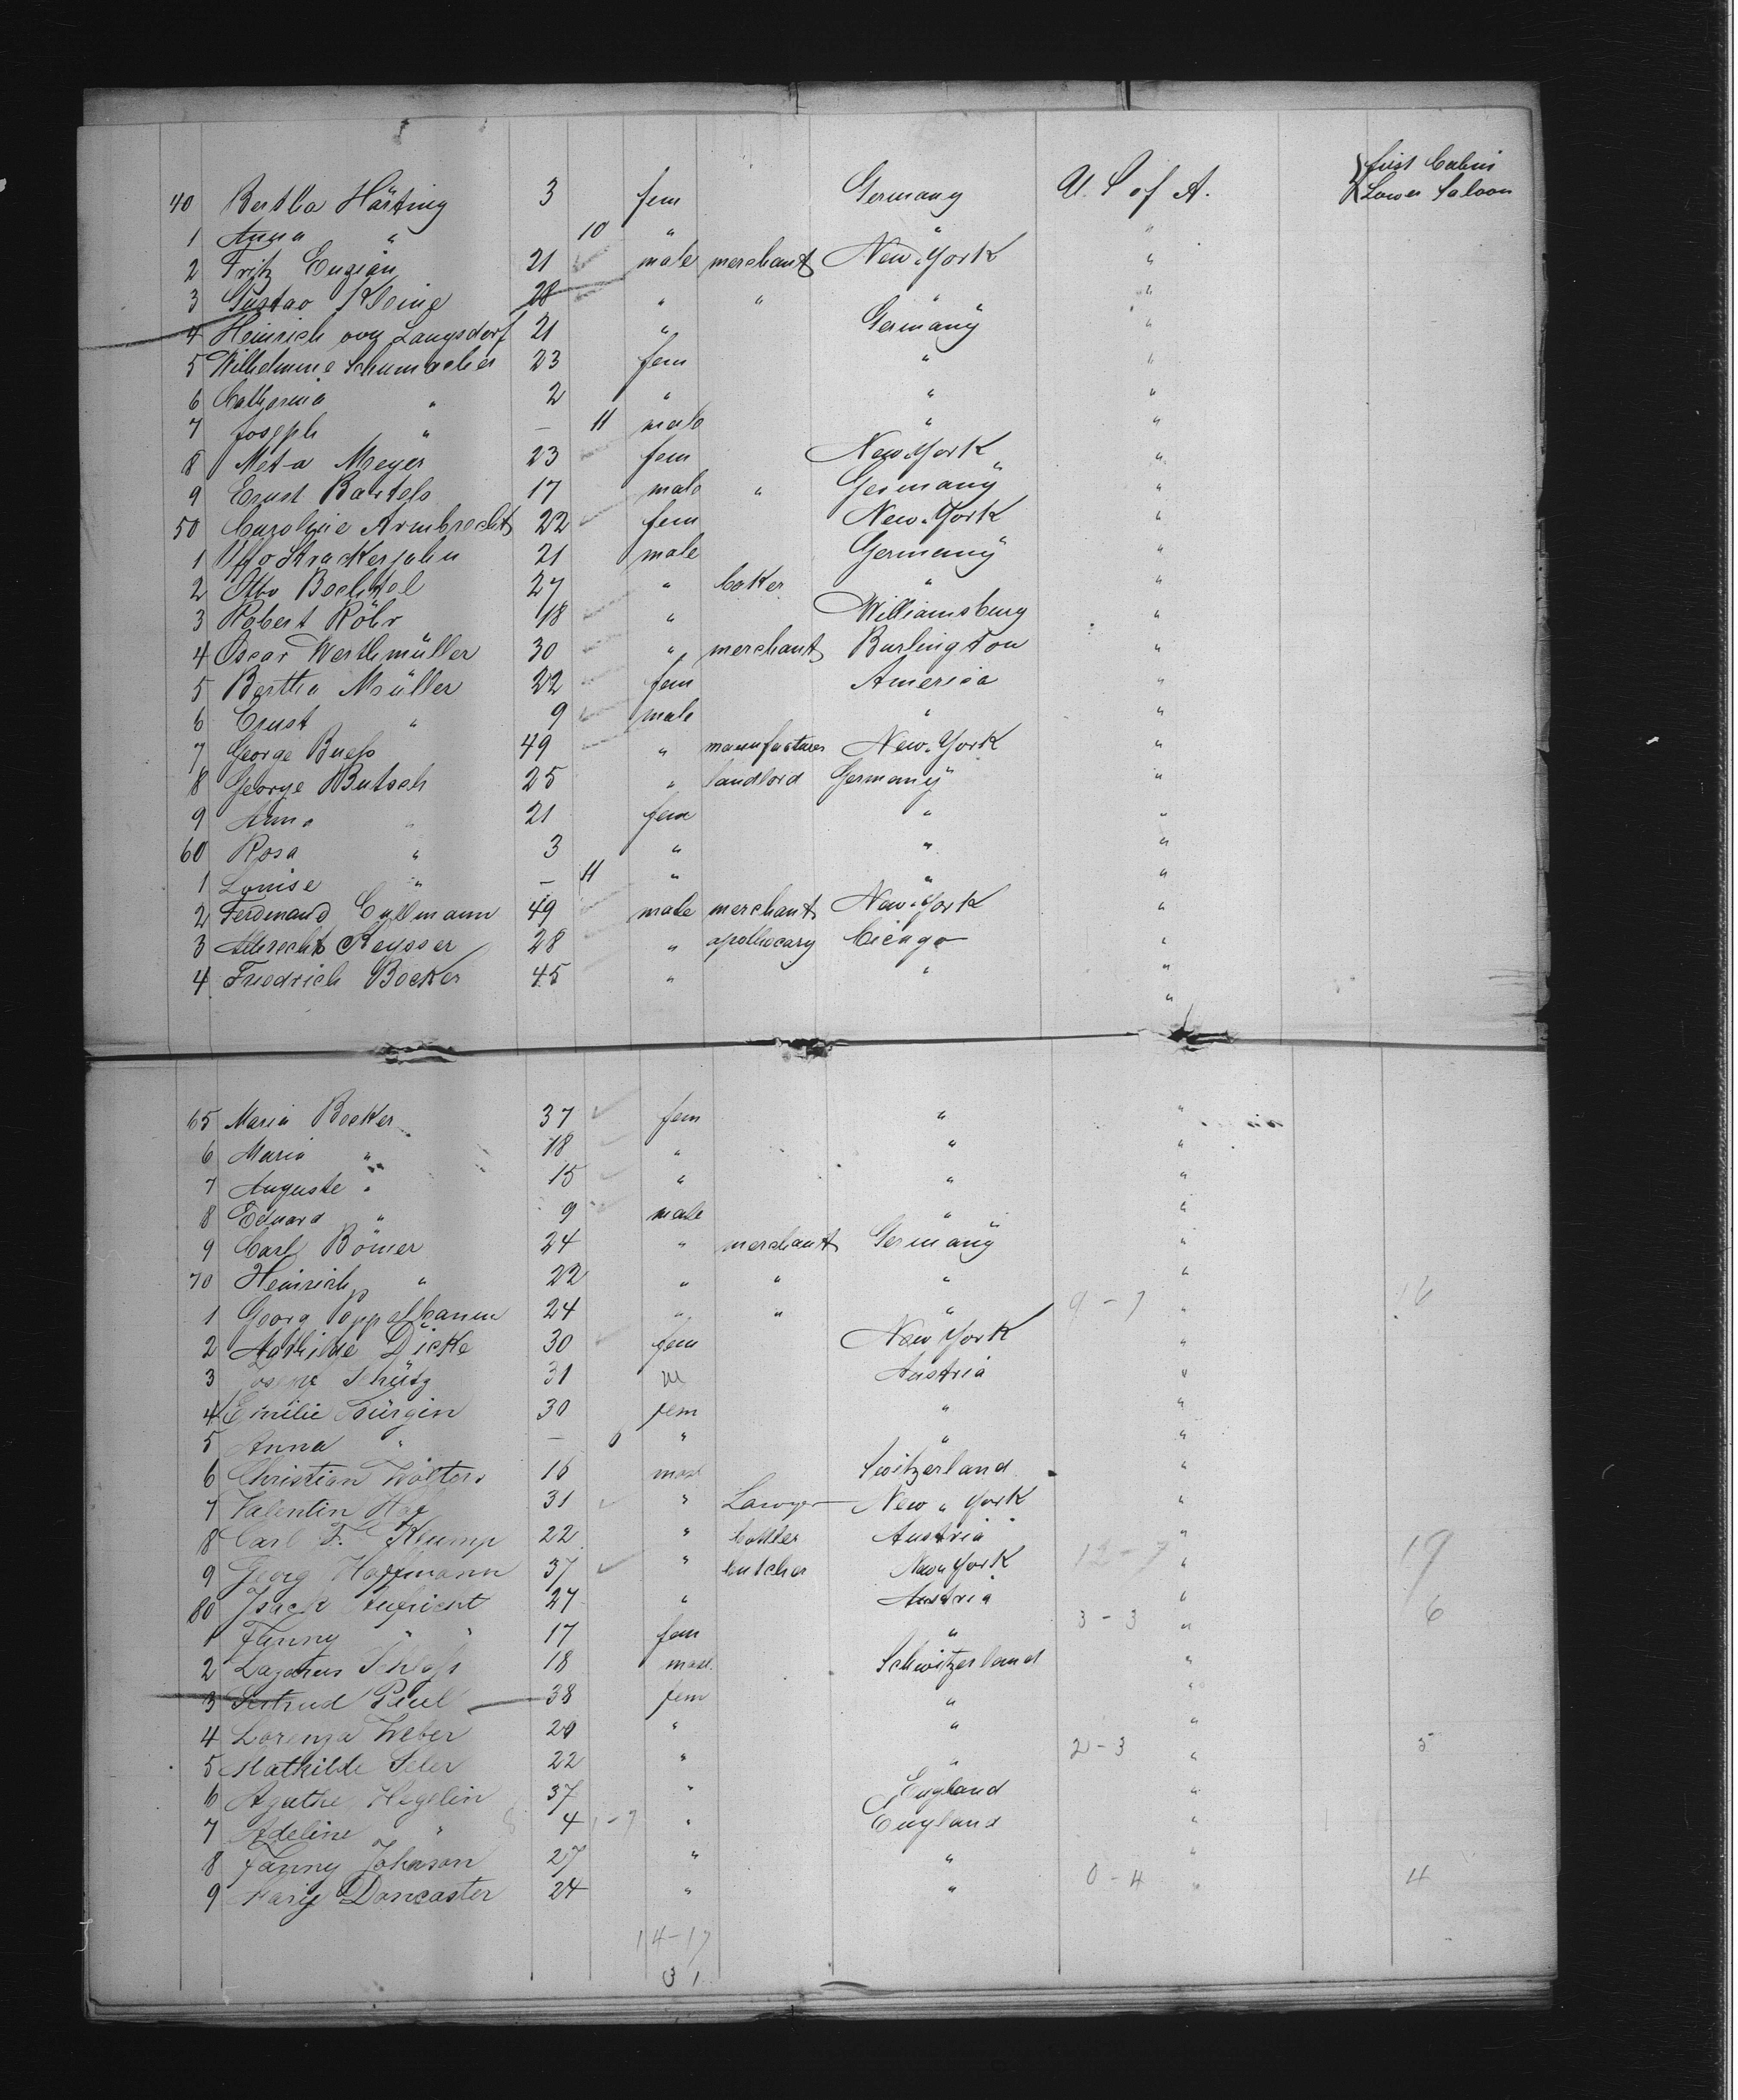 first Cabin
40 Bertha Härting 3 fem Germany U. S of A. Lower Saloon
1 Anna " 10 " " "
2 Fritz Enzian 21 male merchant New-York "
3 Gustav Kleine 28 " " " "
4 Heinrich von Langsdorf 21 " Germany "
5 Wilhelmine Schumacher 23 fem " "
6 Catharina " 2 " " "
7 Joseph " — 11 male " "
8 Meta Meyer 23 fem New York "
9 Ernst Bartels 17 male " Germany "
50 Caroline Armbrecht 22 fem New-York "
1 Strackerjahn 21 male Germany "
2 Otto Bechtel 27 " baker " "
3 Robert Röhr 18 " Williamsburg "
4 Oscar Werthmüller 30 " merchant Burlington "
5 Bertha Müller 22 fem America "
6 Ernst " 9 male " "
7 George Bueß 49 " manufacturer New-York "
8 George Butsch 25 " landlord Germany "
9 Anna " 21 fem " "
60 Rosa " 3 " " "
1 Louise " — 11 " " "
2 Ferdinand Cullmann 49 male merchant New-York "
3 Albrecht Keysser 28 " apothecary Cicago "
4 Friedrich Becker 45 " " "
"
65 Maria Becker 37 fem " "
6 Maria " 18 " " "
7 Auguste " 15 " " "
8 Eduard " 9 male " "
9 Carl Bömer 24 " merchant Germany "
70 Heinrich " 22 " " " "
1 Georg Poppelbaum 24 " " " 9-7 " 16
2 Mathilde Dicke 30 fem New York "
3 Josepf Schütz 31 m Austria "
4 Emilie Bürgin 30 fem " "
5 Anna " — 6 " " "
6 Christian Wolters 16 masl Switzerland "
7 Valentin 31 " Lawyer New " York "
8 Carl F. Klump 22 " Austria "
9 Georg Hoffmann 37 " butcher New York 12-7 " 19
80 Isack 27 " Austria "
1 Fanny " " 17 fem " 3-3 " 6
2 Lazarus Schloß 18 masl. Schwitzerland "
3 Gertrud Paul 38 fem " "
4 Lorenza Weber 20 " " "
5 Mathilde Seler 22 " " 2-3 " 5
6 Agathe Hegelin 37 " England "
7 Adeline " 4 " England "
8 Fanny Johnson 27 " " "
9 Marie Doncaster 24 " " 0-4 " 4
14-17
31